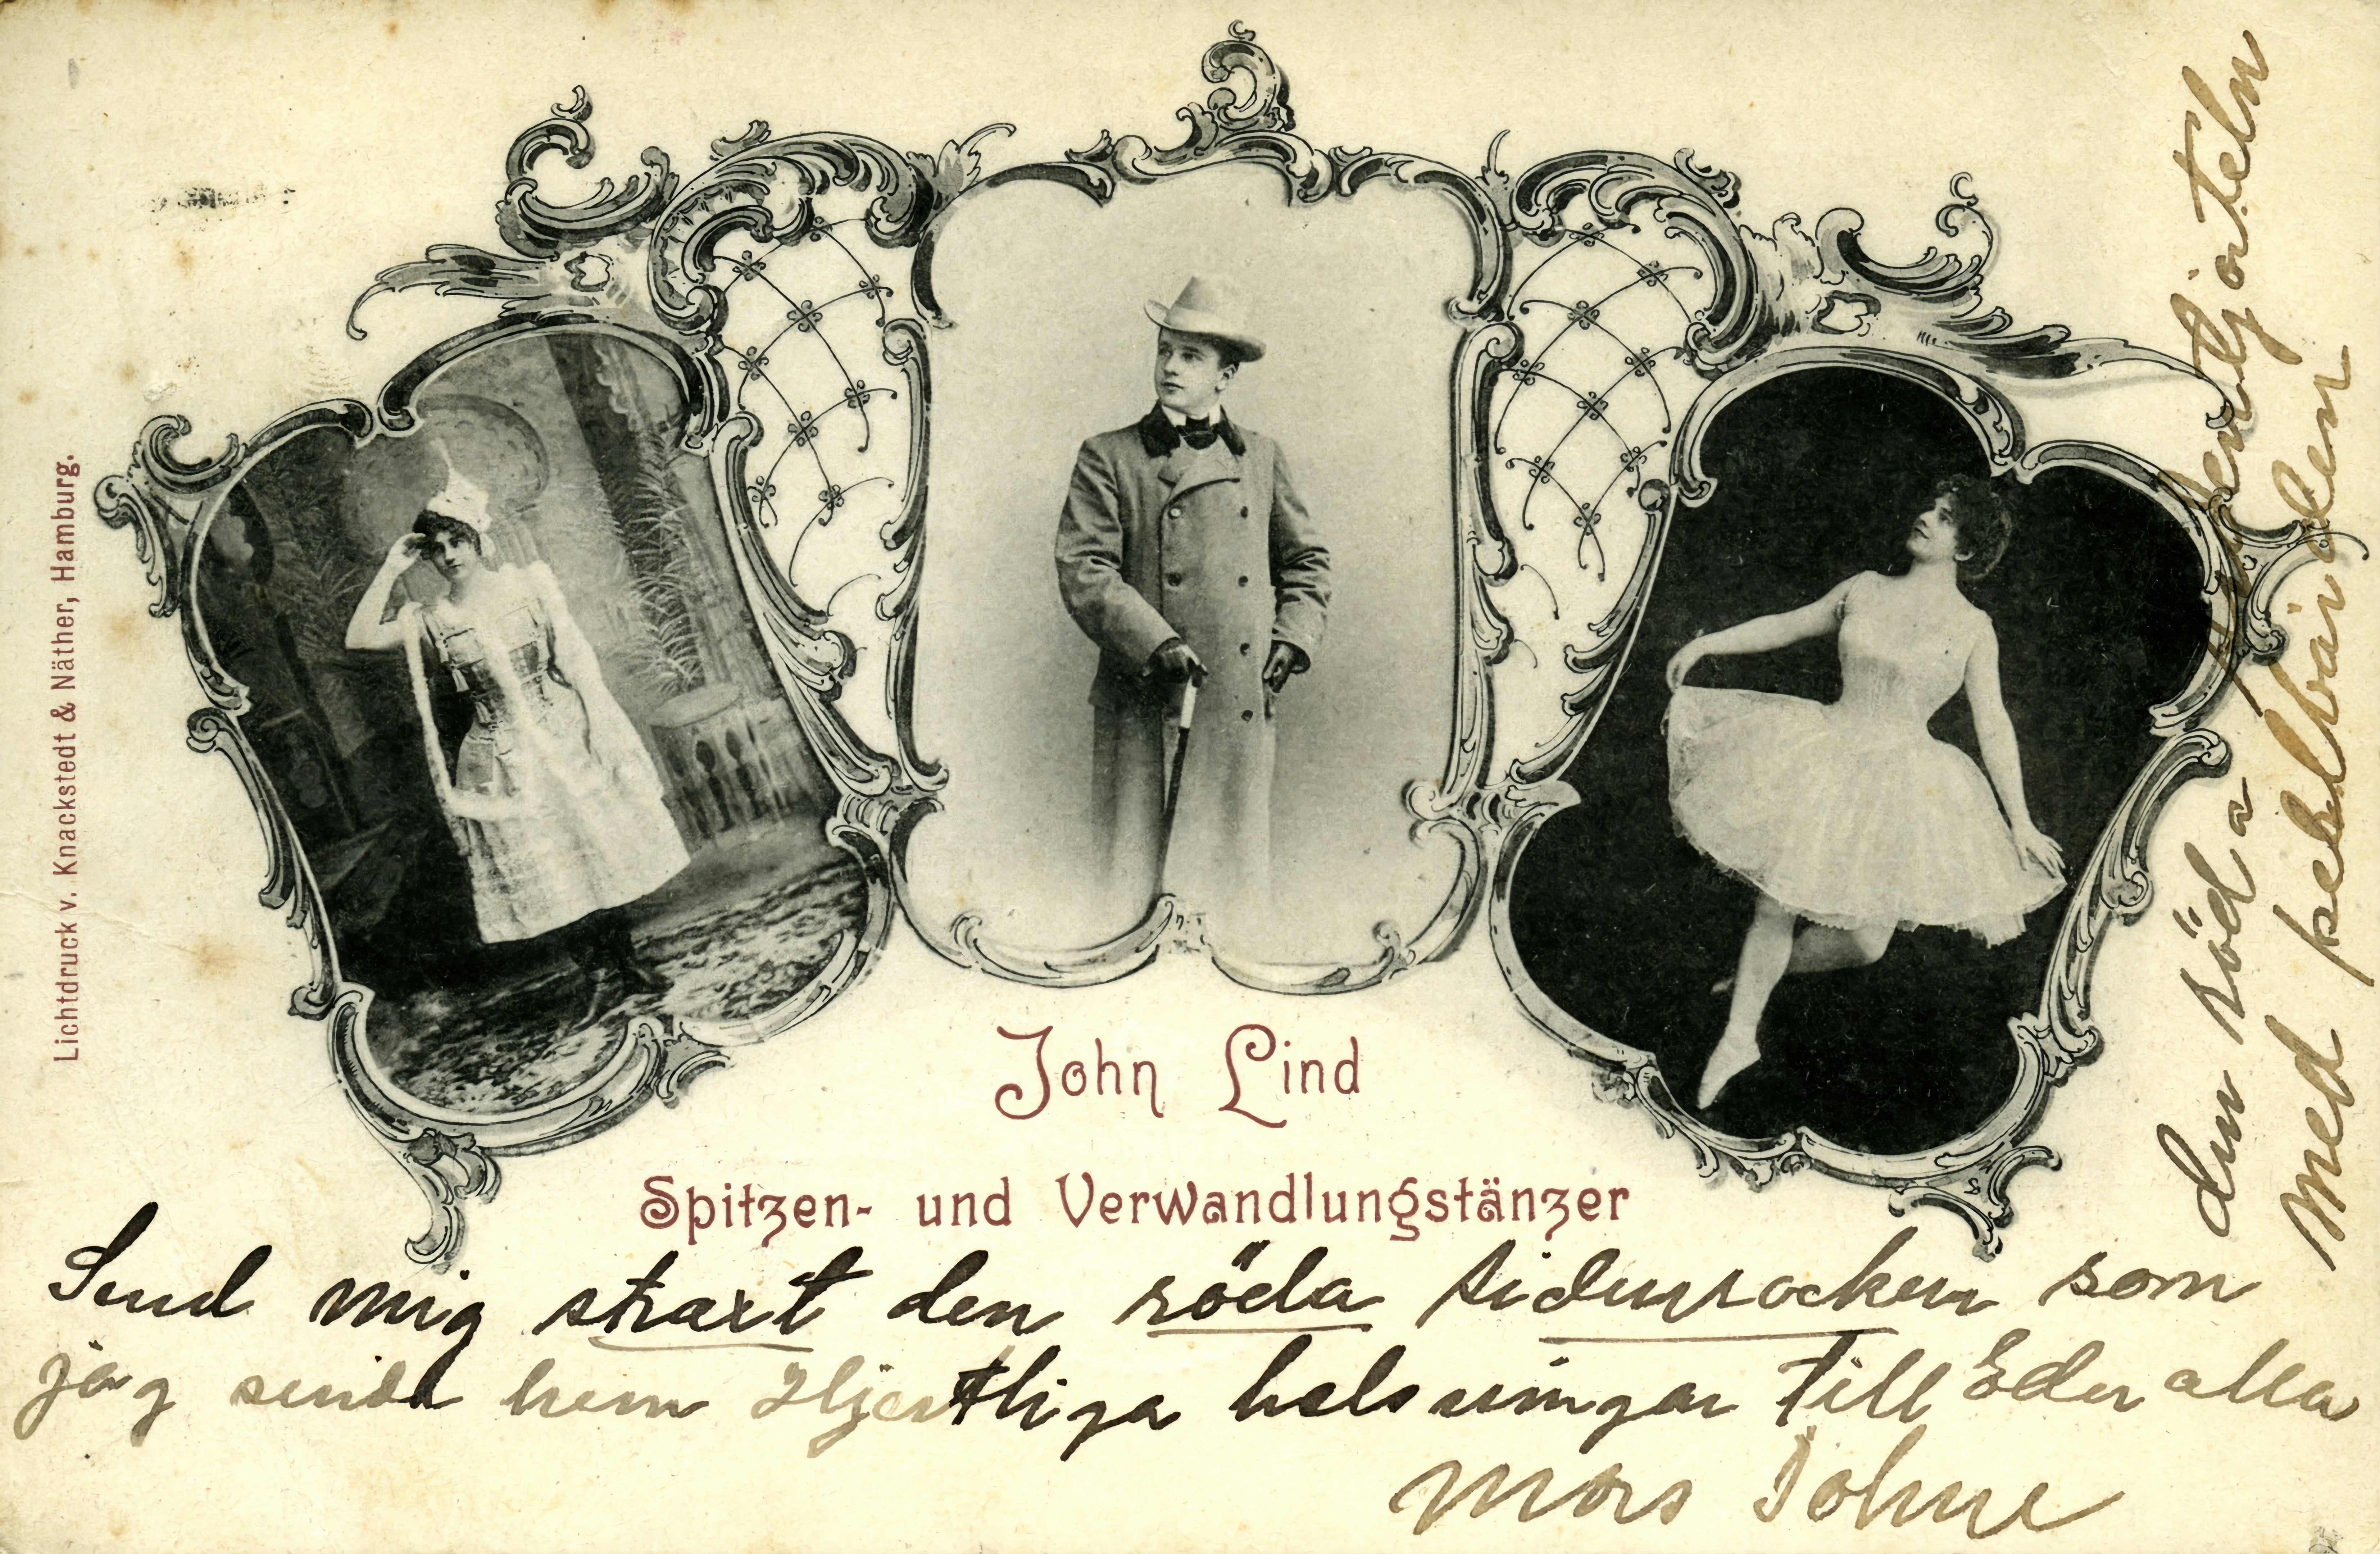 Lichtdruck v. Knackstedt & Näther, Hamburg.
John Lind
Spitzen- und Verwandlungstänzer
Send mig straxt den röda sidenrocken som
jag sende hem Hjertliga helsningar till Eder alla
Mors Johne
den röda
Med spetsbården